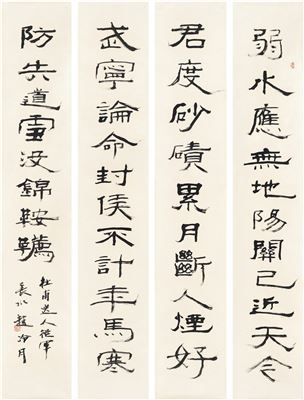 弱水應無地陽關已近天今
君度砂磧累月斷人煙好
武寧論命封侯不計年馬寒
防失道雪没錦鞍韉
杜甫送人從軍
長水趙冷月